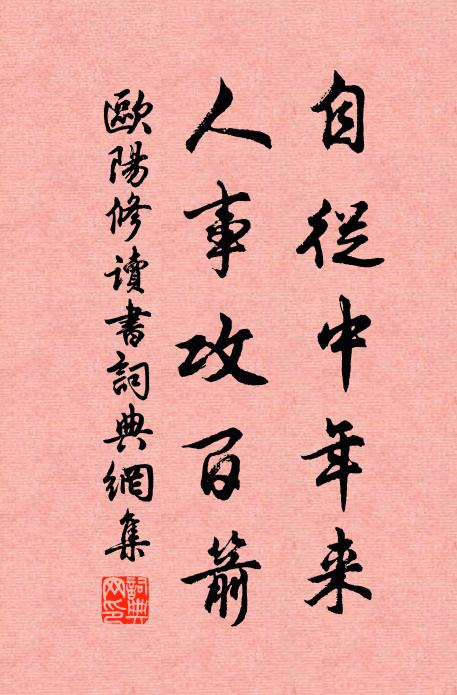 自從中年来
人事攻百箭
歐陽修讀書詞典網集
詞典网印